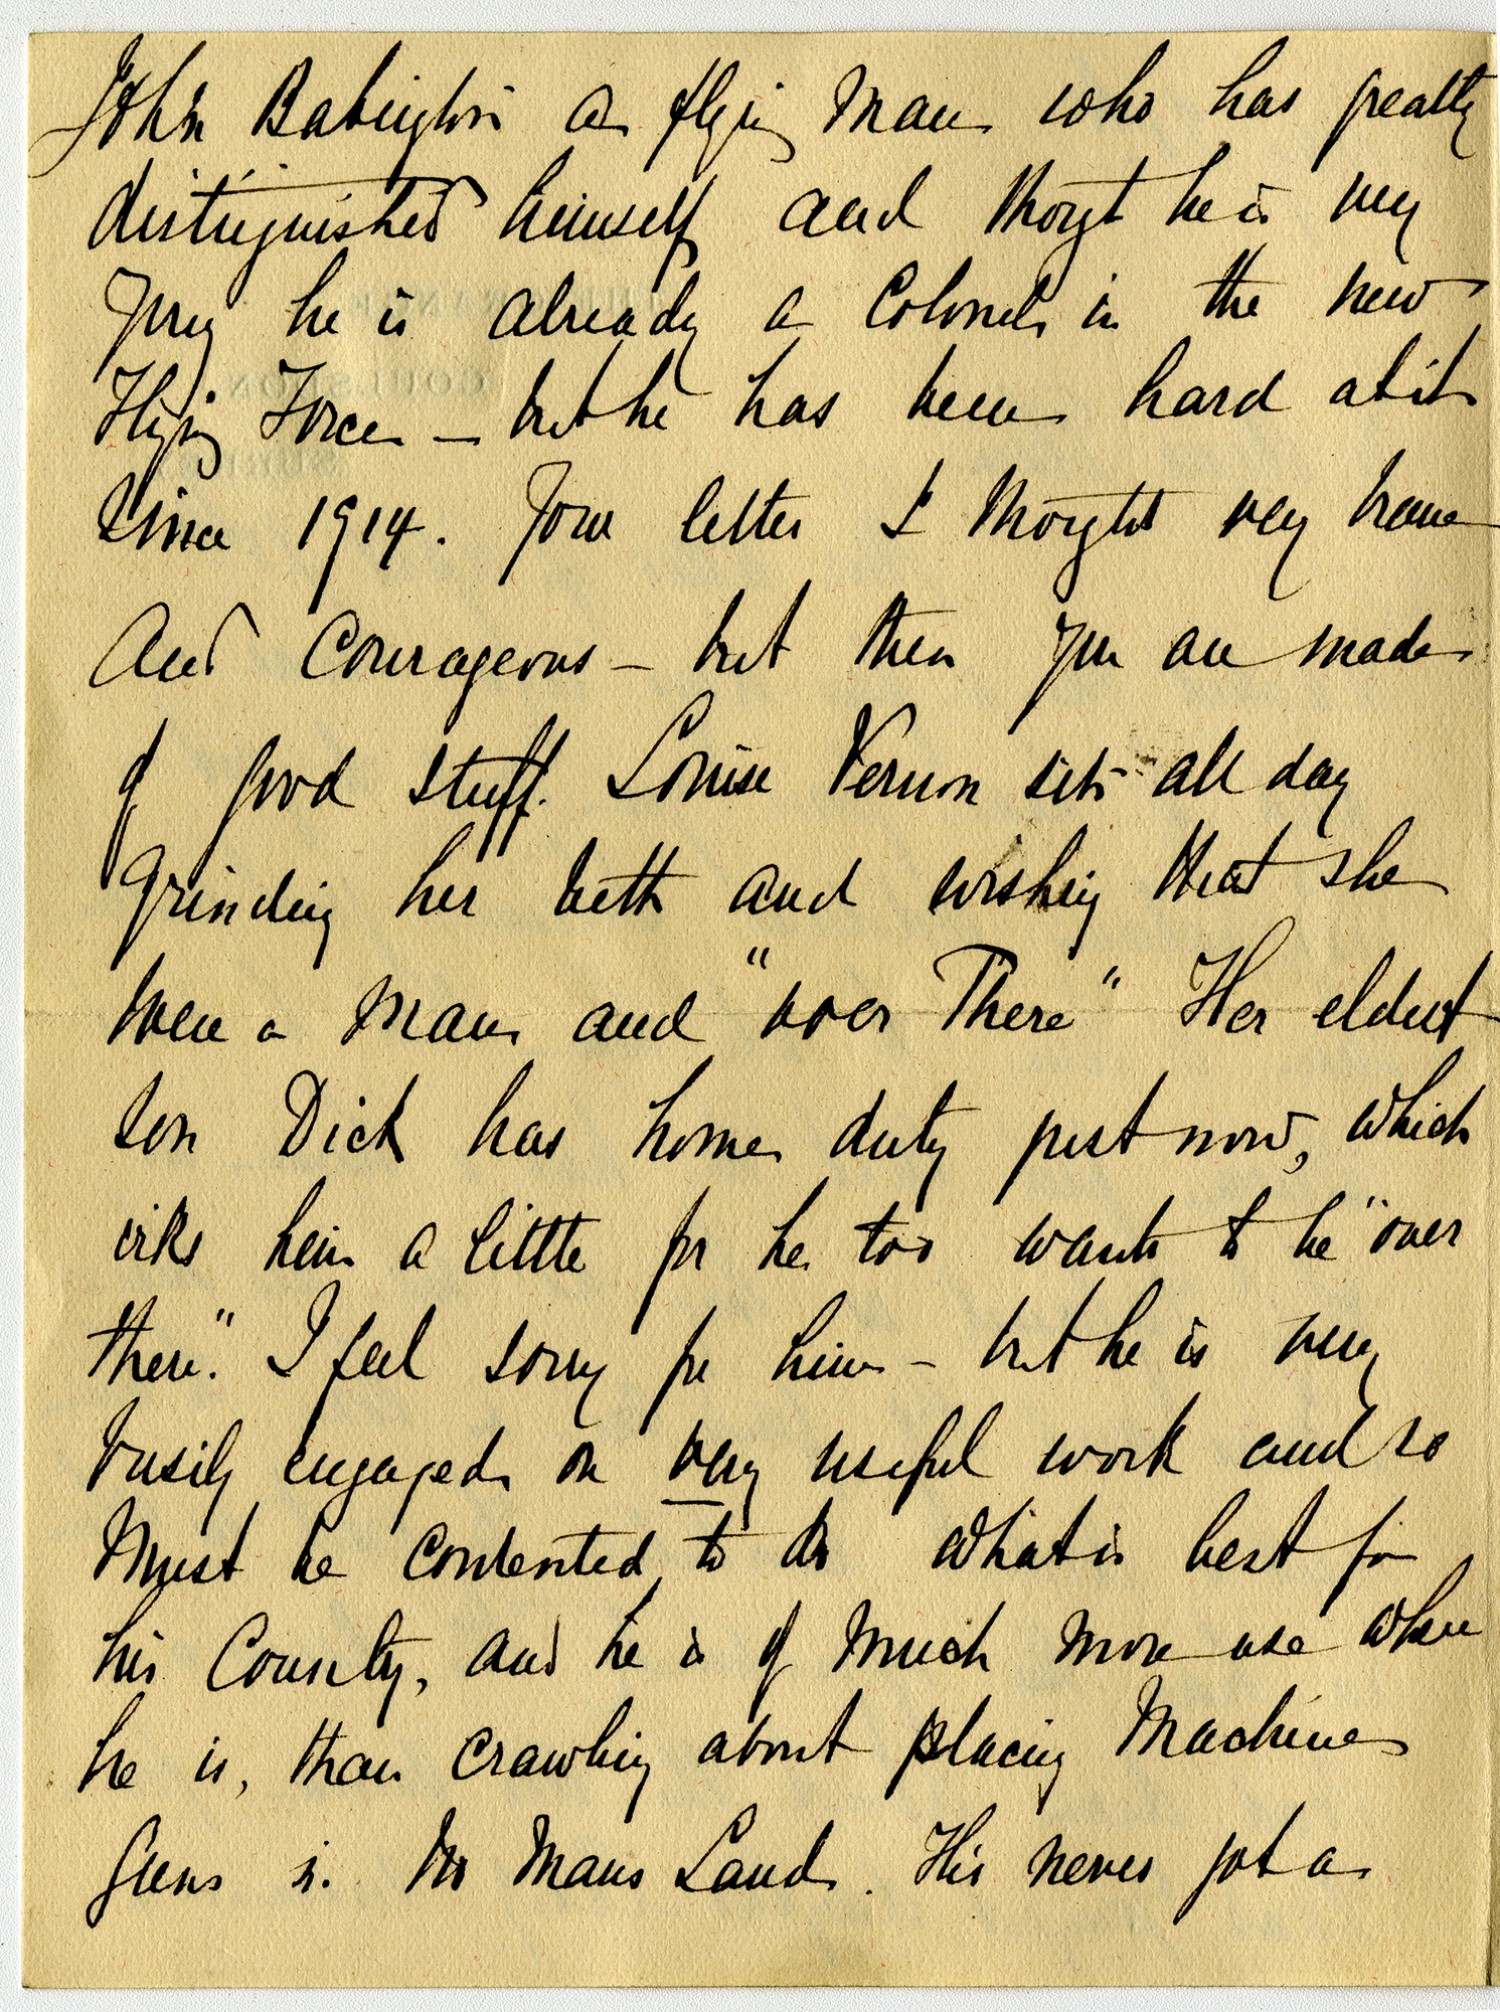 John Babington a flying man who has greatly
distinguished himself and thought he is very
young he is already a Colonel in the new
Flying Force — but he has been hard at it
since 1914. Your letter I thought very brave
and Courageous — but then you are made
of good stuff. Louise Vernon sits all day
grinding her teeth and wishing that she
were a man and "over There" Her eldest
son Dick has home duty just now, which
irks him a little for he too wants to be "over
there." I feel sorry for him — but he is very
busily engaged on very useful work and so
must be contented to do what is best for
his Country, and he is of much more use where
he is, than crawling about placing Machine
Guns in No Mans Land. His nerves got a